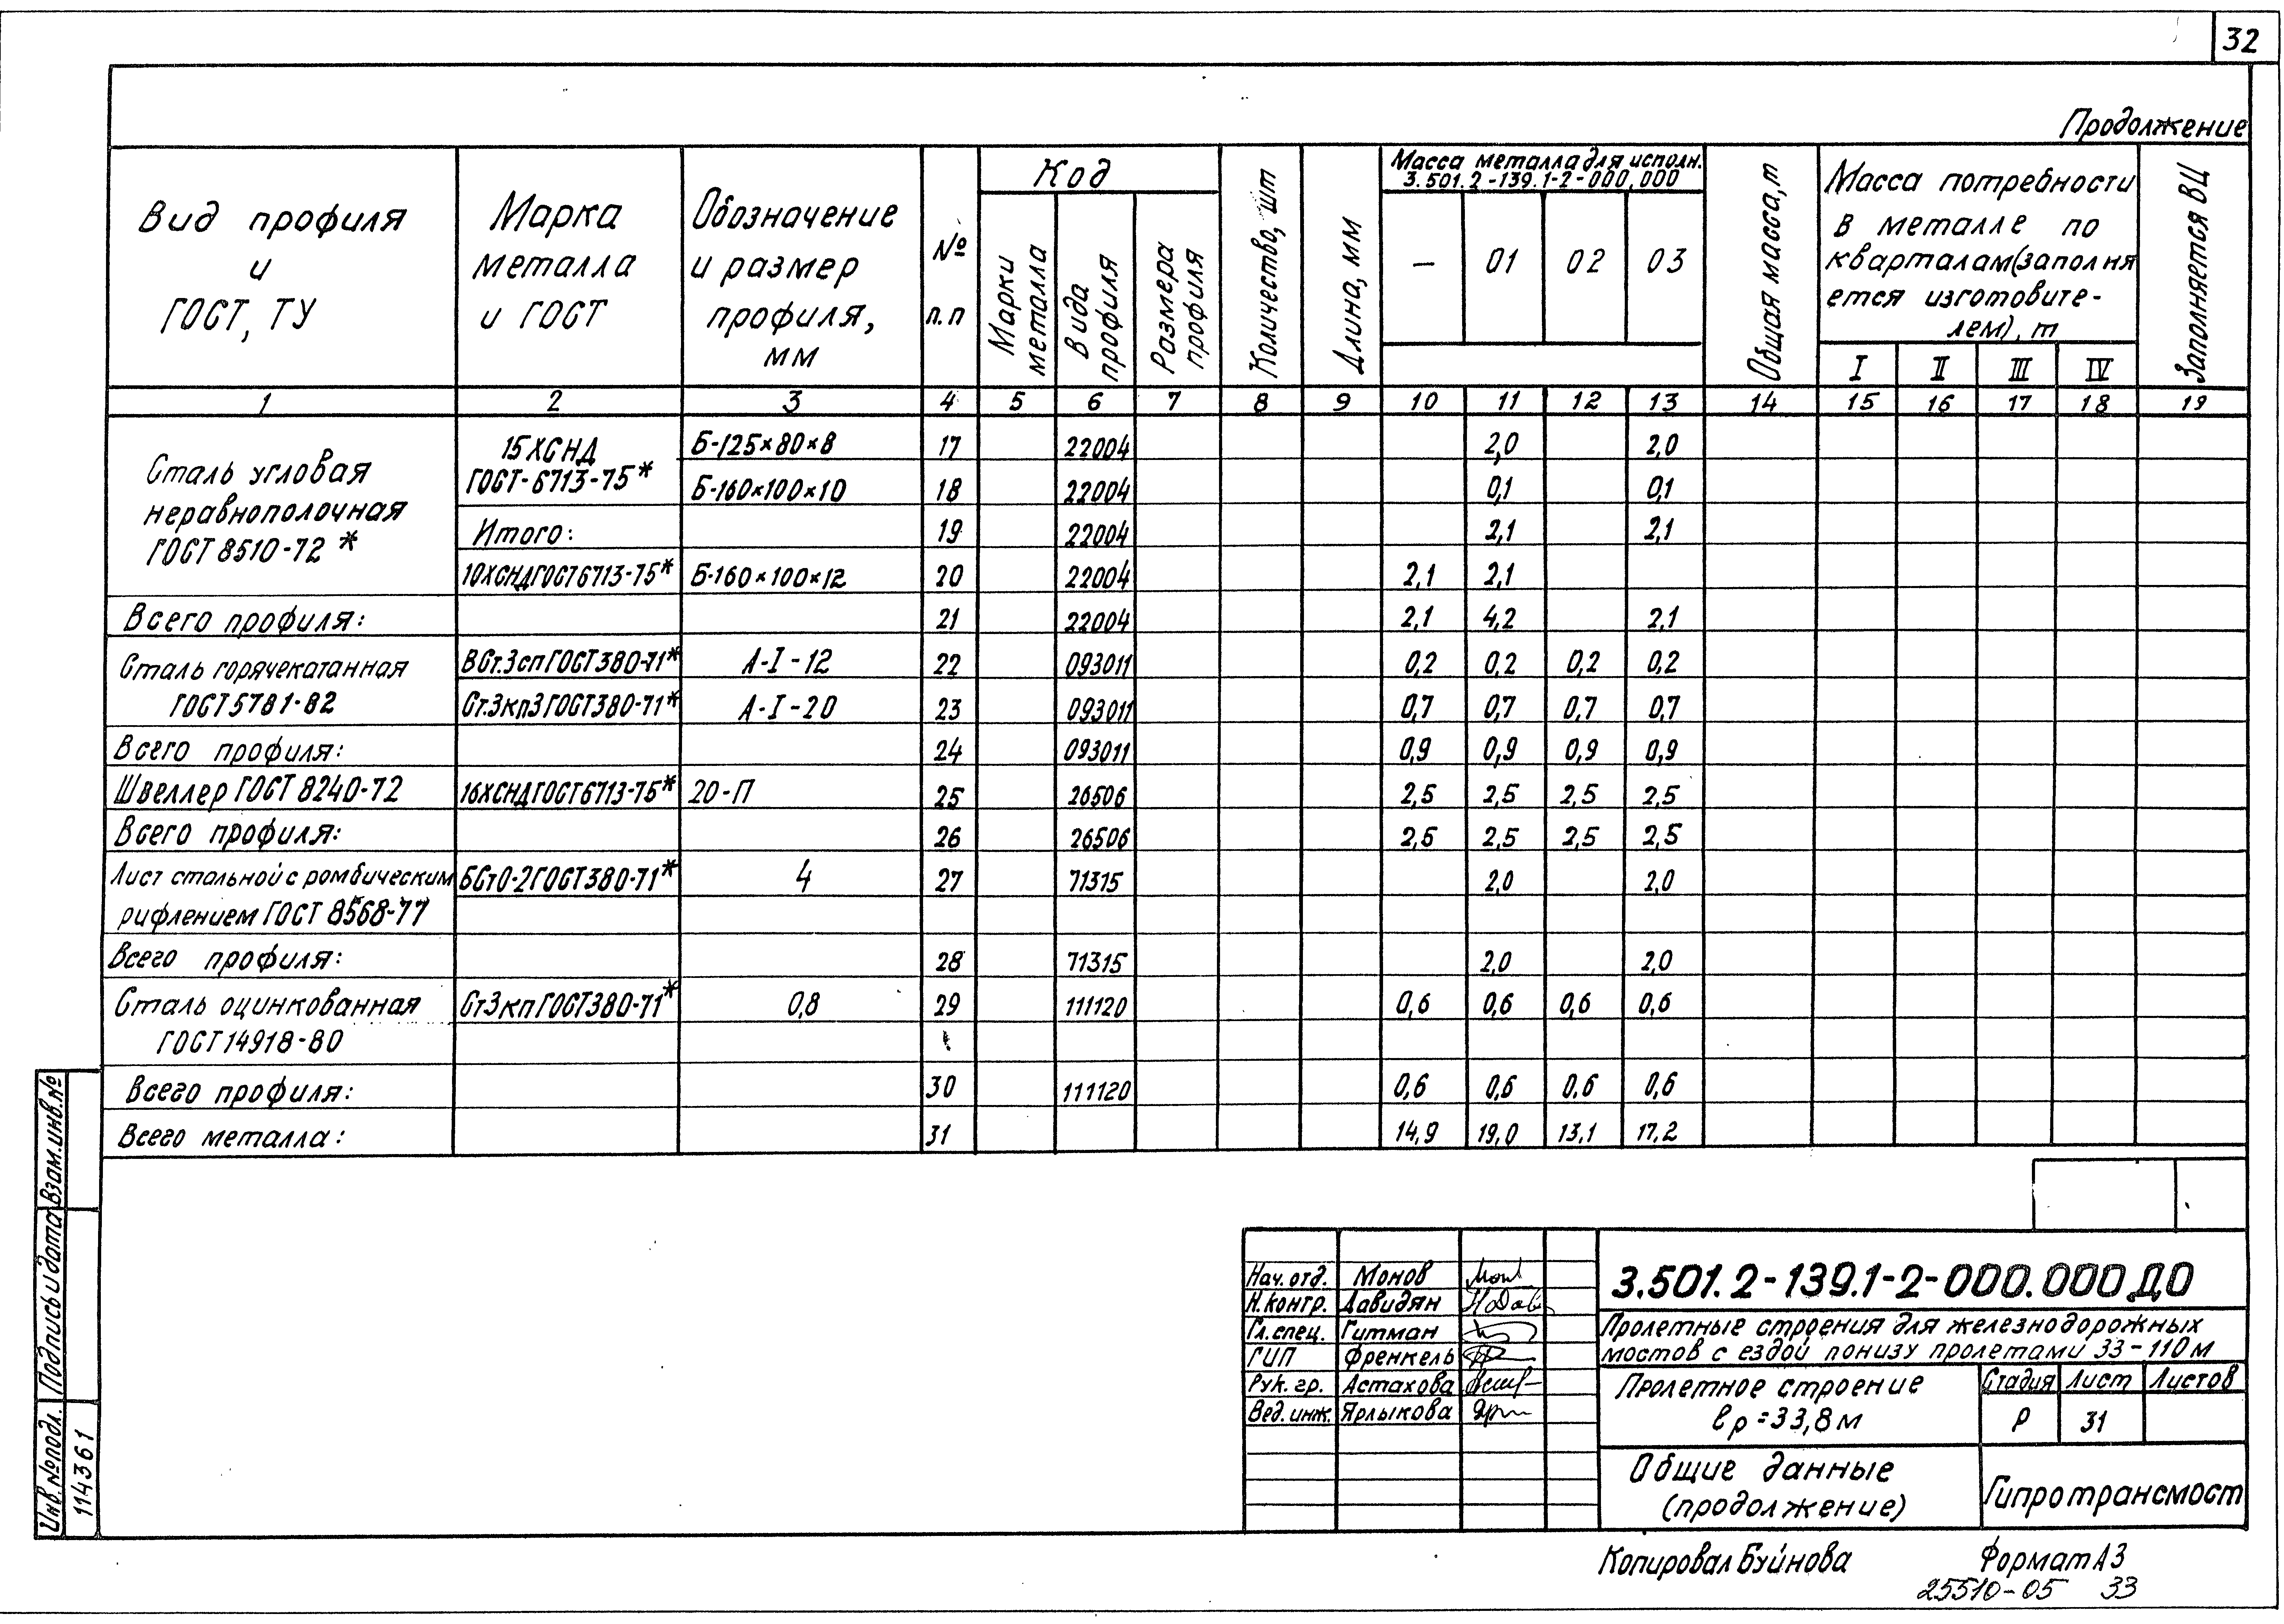 32
Продолжение
Вид профиля и ГОСТ, ТУ
Марка металла и ГОСТ
Обозначение и размер профиля, мм
№ п.п
Код
Марки металла
Вида профиля
Размера профиля
Количество, шт
Длина, мм
Масса металла для исполн. 3.501.2-139.1-2-000.000
— 01 02 03
Общая масса, т
Масса потребности в металле по кварталам (заполняется изготовителем), т
I II III IV
Заполняется ВЦ
1 2 3 4 5 6 7 8 9 10 11 12 13 14 15 16 17 18 19
Сталь угловая неравнополочная ГОСТ 8510-72 *
15ХСНД ГОСТ-6713-75*
Б-125×80×8 17 22004 2,0 2,0
Б-160×100×10 18 22004 0,1 0,1
Итого: 19 22004 2,1 2,1
10ХСНД ГОСТ 6713-75* Б-160×100×12 20 22004 2,1 2,1
Всего профиля: 21 22004 2,1 4,2 2,1
Сталь горячекатанная ГОСТ 5781-82
ВСт.3сп ГОСТ 380-71* А-I-12 22 093011 0,2 0,2 0,2 0,2
Ст.3кп3 ГОСТ 380-71* А-I-20 23 093011 0,7 0,7 0,7 0,7
Всего профиля: 24 093011 0,9 0,9 0,9 0,9
Швеллер ГОСТ 8240-72 16ХСНД ГОСТ 6713-75* 20-П 25 26506 2,5 2,5 2,5 2,5
Всего профиля: 26 26506 2,5 2,5 2,5 2,5
Лист стальной с ромбическим рифлением ГОСТ 8568-77
БСт0-2 ГОСТ 380-71* 4 27 71315 2,0 2,0
Всего профиля: 28 71315 2,0 2,0
Сталь оцинкованная ГОСТ 14918-80
Ст3кп ГОСТ 380-71* 0,8 29 111120 0,6 0,6 0,6 0,6
Всего профиля: 30 111120 0,6 0,6 0,6 0,6
Всего металла: 31 14,9 19,0 13,1 17,2
Взам. инв. №
Подпись и дата
Инв. № подл.
114361
Нач. отд. Монов
Н. контр. Давидян
Гл. спец. Гитман
ГИП Френкель
Рук. гр. Астахова
Вед. инж. Ярлыкова
3.501.2-139.1-2-000.000 ДО
Пролетные строения для железнодорожных
мостов с ездой понизу пролетами 33-110 м
Пролетное строение
ℓр = 33,8 м
Стадия Лист Листов
Р 31
Общие данные
(продолжение)
Гипротрансмост
Копировал Буйнова
Формат А3
25510-05 33